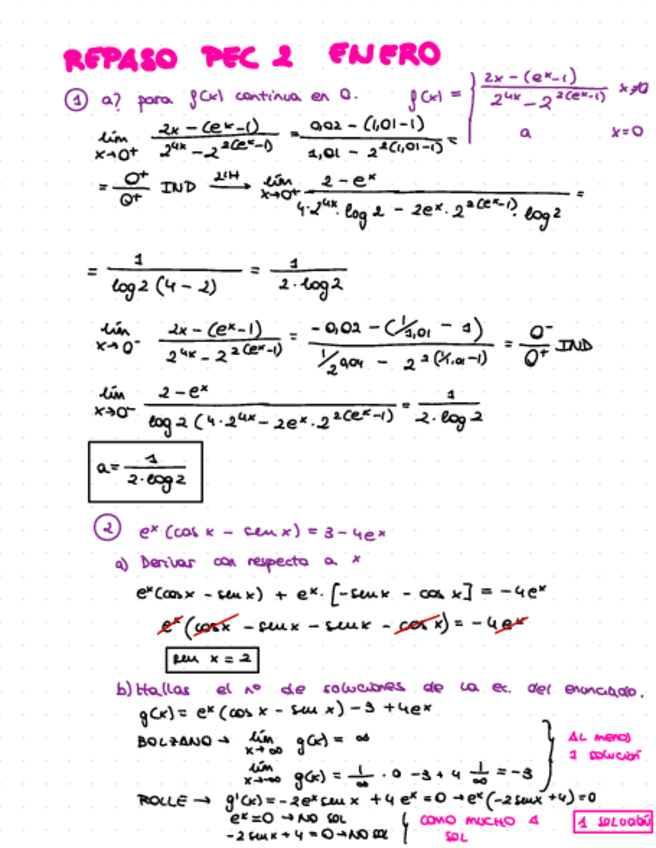 REPASO PEC 2 ENERO
① a? para f(x) continua en 0. f(x) = { (2x - (e^x - 1)) / (2^(4x) - 2^(2(e^x - 1))) x≠0
a x=0
lím x→0⁺ (2x - (e^x - 1)) / (2^(4x) - 2^(2(e^x - 1))) = (0,02 - (1,01 - 1)) / (1,01 - 2^(2(1,01 - 1))) =
= 0⁺/0⁺ IND → L'H lím x→0⁺ (2 - e^x) / (4·2^(4x)·log 2 - 2e^x·2^(2(e^x - 1))·log 2) =
= 1 / (log 2 (4 - 2)) = 1 / (2·log 2)
lím x→0⁻ (2x - (e^x - 1)) / (2^(4x) - 2^(2(e^x - 1))) = (-0,02 - (1/1,01 - 1)) / (1/2^(0,04) - 2^(2(1/1,01 - 1))) = 0⁻/0⁺ IND
lím x→0⁻ (2 - e^x) / (log 2 (4·2^(4x) - 2e^x·2^(2(e^x - 1)))) = 1 / (2·log 2)
a = 1 / (2·log 2)
② e^x (cos x - sen x) = 3 - 4e^x
a) Derivar con respecto a x
e^x (cos x - sen x) + e^x · [-sen x - cos x] = -4e^x
e^x (cos x - sen x - sen x - cos x) = -4e^x
sen x = 2
b) Hallas el nº de soluciones de la ec. del enunciado.
g(x) = e^x (cos x - sen x) - 3 + 4e^x
BOLZANO → lím x→∞ g(x) = ∞
lím x→-∞ g(x) = 1/∞ · 0 - 3 + 4 1/∞ = -3
AL menos
1 solución
ROLLE → g'(x) = -2e^x sen x + 4e^x = 0 → e^x (-2sen x + 4) = 0
e^x = 0 → NO SOL
-2 sen x + 4 = 0 → NO SOL
COMO MUCHO 1
SOL
1 SOLUCIÓN